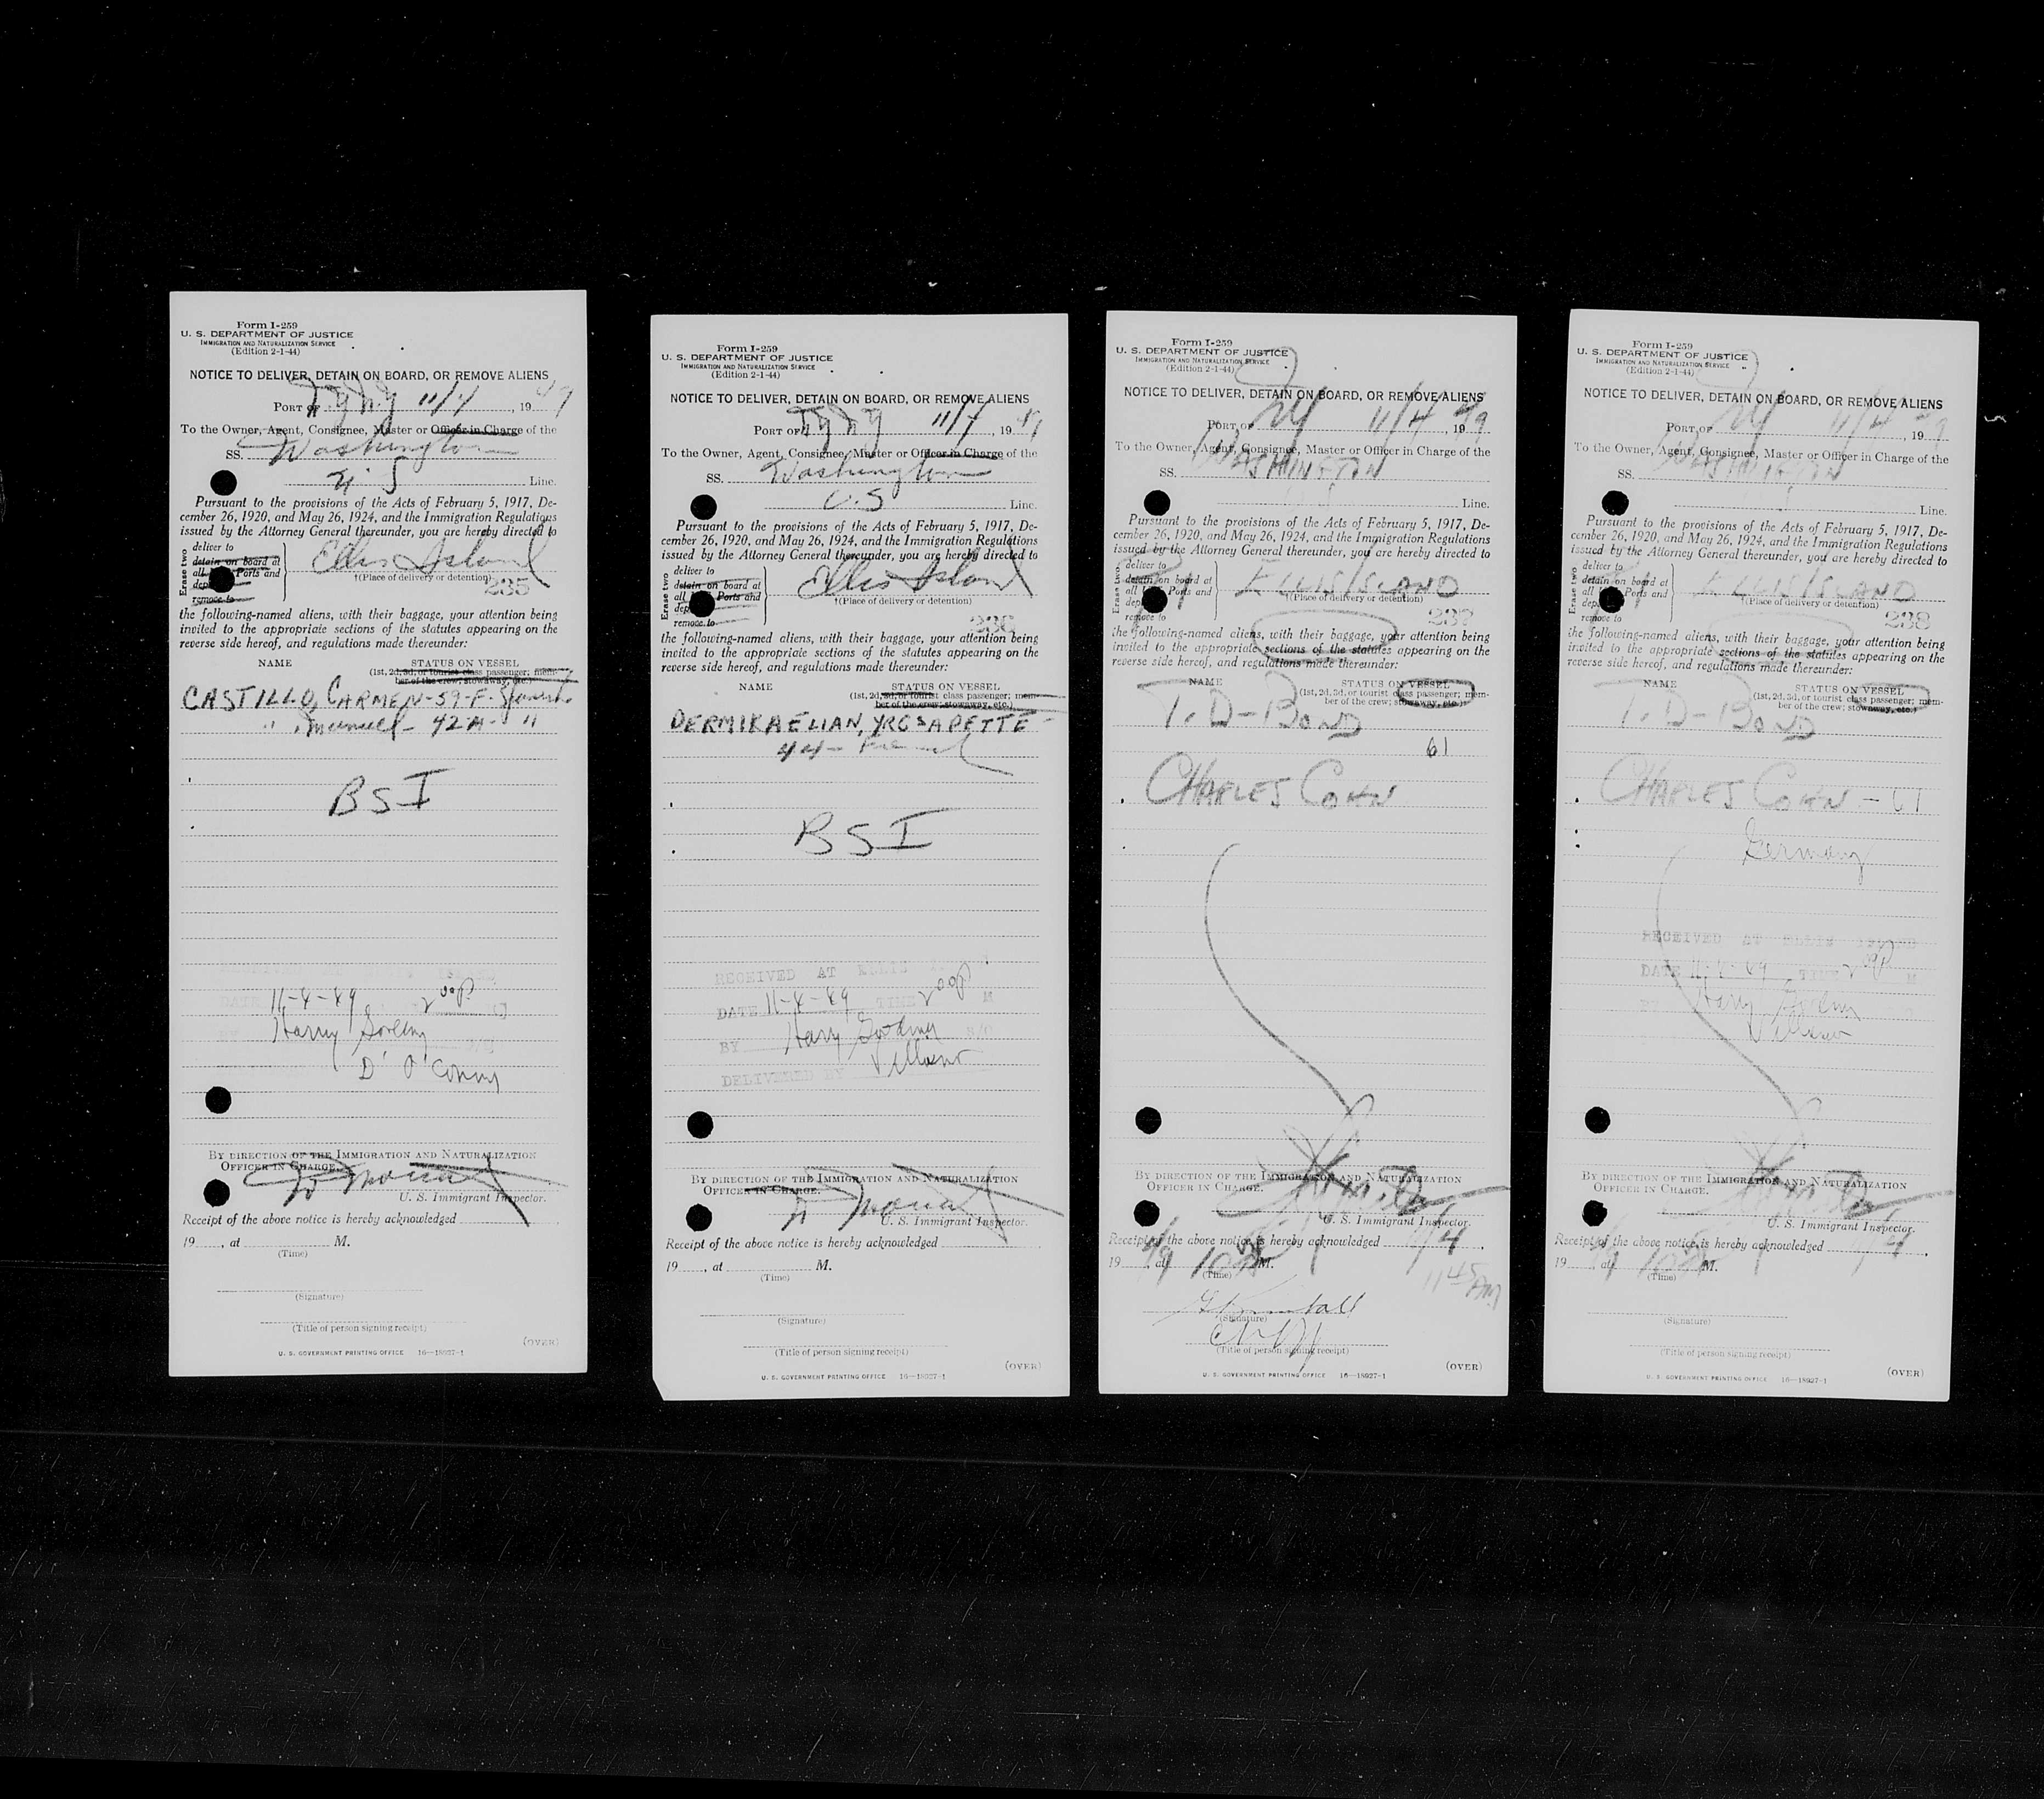 Form I-259
U. S. DEPARTMENT OF JUSTICE
IMMIGRATION AND NATURALIZATION SERVICE
(Edition 2-1-44)
NOTICE TO DELIVER, DETAIN ON BOARD, OR REMOVE ALIENS
PORT OF 11/4, 1949
To the Owner, Agent, Consignee, Master or Officer in Charge of the
SS. Washington
U S Line.
Pursuant to the provisions of the Acts of February 5, 1917, De-
cember 26, 1920, and May 26, 1924, and the Immigration Regulations
issued by the Attorney General thereunder, you are hereby directed to
Erase two
deliver to
detain on board at
all Ports and
remove to
Ellis Island
†(Place of delivery or detention)
235
the following-named aliens, with their baggage, your attention being
invited to the appropriate sections of the statutes appearing on the
reverse side hereof, and regulations made thereunder:
NAME STATUS ON VESSEL
(1st, 2d, 3d, or tourist class passenger; mem-
ber of the crew; stowaway, etc.)
CASTILLO, CARMEN-59-F- Spanish
" , Manuel - 42A- "
BSI
11-4-49 2 00P
Harry
D' O'Conny
BY DIRECTION OF THE IMMIGRATION AND NATURALIZATION
OFFICER IN CHARGE.
U. S. Immigrant Inspector.
Receipt of the above notice is hereby acknowledged
19 , at M.
(Time)
(Signature)
(Title of person signing receipt)
(OVER)
U. S. GOVERNMENT PRINTING OFFICE 16—18927-1
Form I-259
U. S. DEPARTMENT OF JUSTICE
IMMIGRATION AND NATURALIZATION SERVICE
(Edition 2-1-44)
NOTICE TO DELIVER, DETAIN ON BOARD, OR REMOVE ALIENS
PORT OF 11/4, 1949
To the Owner, Agent, Consignee, Master or Officer in Charge of the
SS. Washington
U.S Line.
Pursuant to the provisions of the Acts of February 5, 1917, De-
cember 26, 1920, and May 26, 1924, and the Immigration Regulations
issued by the Attorney General thereunder, you are hereby directed to
Erase two
deliver to
detain on board at
all Ports and
remove to
Ellis Island
†(Place of delivery or detention)
236
the following-named aliens, with their baggage, your attention being
invited to the appropriate sections of the statutes appearing on the
reverse side hereof, and regulations made thereunder:
NAME STATUS ON VESSEL
(1st, 2d, 3d, or tourist class passenger; mem-
ber of the crew; stowaway, etc.)
DERMIKAELIAN, YRGSAPETTE -
44-
BSI
RECEIVED AT ELLIS ISLAND
DATE 11-4-49 TIME 2 00P M
BY Harry
DELIVERED BY
BY DIRECTION OF THE IMMIGRATION AND NATURALIZATION
OFFICER IN CHARGE.
U. S. Immigrant Inspector.
Receipt of the above notice is hereby acknowledged
19 , at M.
(Time)
(Signature)
(Title of person signing receipt)
(OVER)
U. S. GOVERNMENT PRINTING OFFICE 16—18927-1
Form I-259
U. S. DEPARTMENT OF JUSTICE
IMMIGRATION AND NATURALIZATION SERVICE
(Edition 2-1-44)
NOTICE TO DELIVER, DETAIN ON BOARD, OR REMOVE ALIENS
PORT OF NY 11/4, 1949
To the Owner, Agent, Consignee, Master or Officer in Charge of the
SS. WASHINGTON
Line.
Pursuant to the provisions of the Acts of February 5, 1917, De-
cember 26, 1920, and May 26, 1924, and the Immigration Regulations
issued by the Attorney General thereunder, you are hereby directed to
Erase two
deliver to
detain on board at
all Ports and
remove to
ELLIS ISLAND
†(Place of delivery or detention)
237
the following-named aliens, with their baggage, your attention being
invited to the appropriate sections of the statutes appearing on the
reverse side hereof, and regulations made thereunder:
NAME STATUS ON VESSEL
(1st, 2d, 3d, or tourist class passenger; mem-
ber of the crew; stowaway, etc.)
T. D-BOND
61
CHARLES COHN
BY DIRECTION OF THE IMMIGRATION AND NATURALIZATION
OFFICER IN CHARGE.
U. S. Immigrant Inspector.
Receipt of the above notice is hereby acknowledged 11/4,
1949, at M.
(Time)
11 45 AM
(Signature)
(Title of person signing receipt)
(OVER)
U. S. GOVERNMENT PRINTING OFFICE 16—18927-1
Form I-259
U. S. DEPARTMENT OF JUSTICE
IMMIGRATION AND NATURALIZATION SERVICE
(Edition 2-1-44)
NOTICE TO DELIVER, DETAIN ON BOARD, OR REMOVE ALIENS
PORT OF NY 11/4, 1949
To the Owner, Agent, Consignee, Master or Officer in Charge of the
SS. WASHINGTON
Line.
Pursuant to the provisions of the Acts of February 5, 1917, De-
cember 26, 1920, and May 26, 1924, and the Immigration Regulations
issued by the Attorney General thereunder, you are hereby directed to
Erase two
deliver to
detain on board at
all Ports and
remove to
ELLIS ISLAND
†(Place of delivery or detention)
238
the following-named aliens, with their baggage, your attention being
invited to the appropriate sections of the statutes appearing on the
reverse side hereof, and regulations made thereunder:
NAME STATUS ON VESSEL
(1st, 2d, 3d, or tourist class passenger; mem-
ber of the crew; stowaway, etc.)
T. D-BOND
CHARLES COHN - 61
Germany
RECEIVED AT ELLIS ISLAND
DATE 11-4-49 TIME 2 00P M
BY Harry
BY DIRECTION OF THE IMMIGRATION AND NATURALIZATION
OFFICER IN CHARGE.
U. S. Immigrant Inspector.
Receipt of the above notice is hereby acknowledged 11/4,
1949, at M.
(Time)
(Signature)
(Title of person signing receipt)
(OVER)
U. S. GOVERNMENT PRINTING OFFICE 16—18927-1